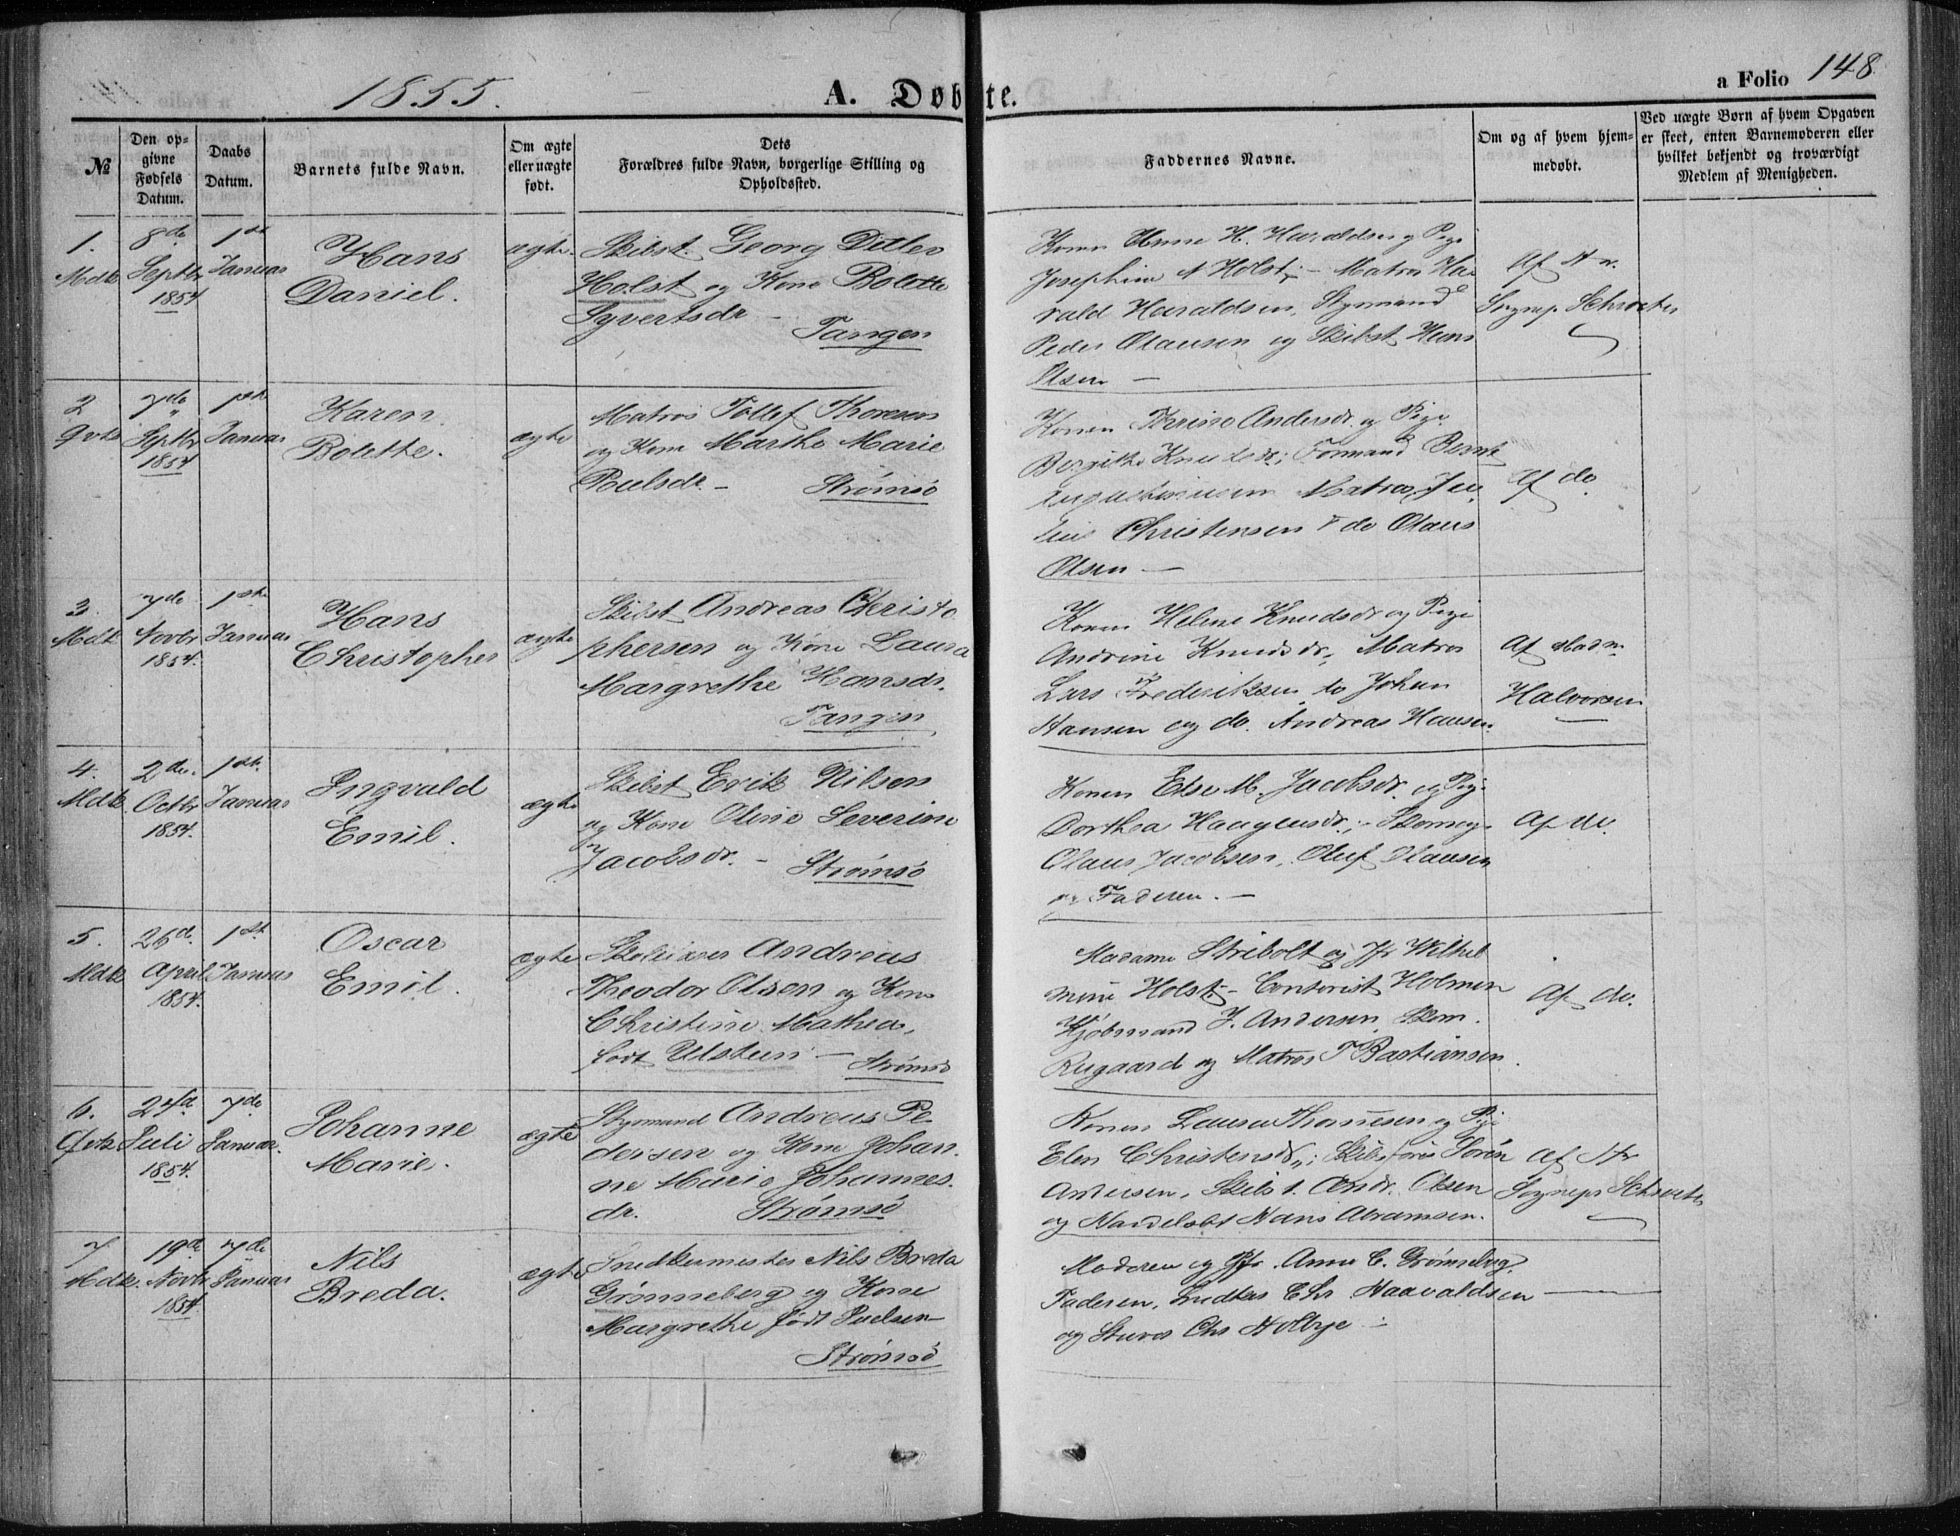 1855.
A. Døbte.
a Folio 148
№
Den op-
givne
Fødsels
Datum.
Daabs
Datum.
Barnets fulde Navn.
Om ægte
eller uægte
født.
Dets
Forældres fulde Navn, borgerlige Stilling og
Opholdssted.
Faddernes Navne.
Om og af hvem hjem-
medøbt.
Ved uægte Børn af hvem Opgaven
er skeet, enten Barnemoderen eller
hvilket bekjendt og troværdigt
Medlem af Menigheden.
1.
Mdk
8de
Septbr
1854
1ste
Januar
Hans
Daniel.
ægte.
Skibst. Georg Ditlev
Holst og Kone Bolette
Syvertsdr –
Tangen
Konen Anne H. Haraldsen og Pige
Josephine N Holst; – Matros Ha
rald Haraldsen, Styrmand
Peder Olausen og Skibst Hans
Olsen –
Af Hr.
Sognep Schroeter
2
Qvk
7de
Septbr
1854
1ste
Januar
Karen
Bolette.
ægte
Matros Tollef Thoresen
og Kone Marthe Marie
Paulsdr. –
Strømsö
Konen Andersdr. og Pige
Bergithe Knudsdr; Formand Bernt
Matros Ju
lius Christensen & do Olaus
Olsen –
Af do.
3
Mdk
7de
Novbr
1854.
1ste
Januar
Hans
Christopher
ægte
Skibst Andreas Christo
phersen og Kone Laura
Margrethe Hansdr.
Tangen
Konen Helene Knudsdr og Pige
Andrine Knudsdr; Matros
Lars Frederiksen, do Johan
Hansen og do. Andreas Hansen.
Af Mad.
Halvorsen
4.
Mdk
2den
Octbr
1854.
1ste
Januar
Ingvald
Emil.
ægte
Skibst Erik Nilsen
og Kone Oline Severine
Jacobsdr. –
Strømsö
Konen Else M. Jacobsdr. og Pige
Dorthea Haagensdr.; –
Olaus Jacobsen, Oluf Olausen
og Faderen. –
Af do.
5.
Mdk
26de
April
1854.
1ste
Januar
Oscar
Emil.
ægte
Andreas
Theodor Olsen og Kone
Christine Mathea,
født Ulsteen –
Strømsö
Madame Stribolt og Jfr Wilhel
mine Holst; – Contorist Holmen
Kjøbmand J. Andersen, Skom.
Rugaard og Matros T Bastiansen.
Af do.
6.
Qvk
24de
Juli
1854.
7de
Januar.
Johanne
Marie.
ægte
Styrmand Andreas Pe
dersen og Kone Johan
ne Marie Johannes
dr.
Strømsö
Konen Laura Thoresen og Pige
Elen Christensdr.; Skibsfører Sörén
Andersen, Skibst. Andr. Olsen
og Handelsbt Hans Abramsen.
Af Hr
Sognepr Schroeter
7
Mdk.
19de
Novbr
1854
7de
Januar
Nils
Breda.
ægte
Snedkermester Nils Breda
Grønneberg og Kone
Margrethe født Poulsen
Strømsö
Moderen og Jfr. Anne C. Grønneberg,
Faderen, Snedker Chr Haavaldsen
og Stuer Chr Holbye –